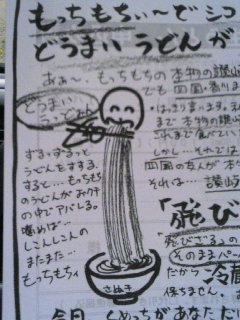 もっちもちぃ〜でシコ
どうまい うどんが
あぁ〜、もっちもちの
本物の讃岐
でも四国・香川ま
はっきり言います。
まで本物の讃岐
これまで食べてい
しかし…それでは
四国の友人が本
それは… 讃岐
どうまい
うどん
ずず・ずずっと
うどんをすする。
すると…もっちもち
のうどんがお口
の中でアバレる。
噛めば…
しこんしこんの
またまた…
もっちもちィ
さぬき
「飛び
「飛びざる」の
そのままパー
だから冷蔵
保ちません。
今日
くめっちがあなただ